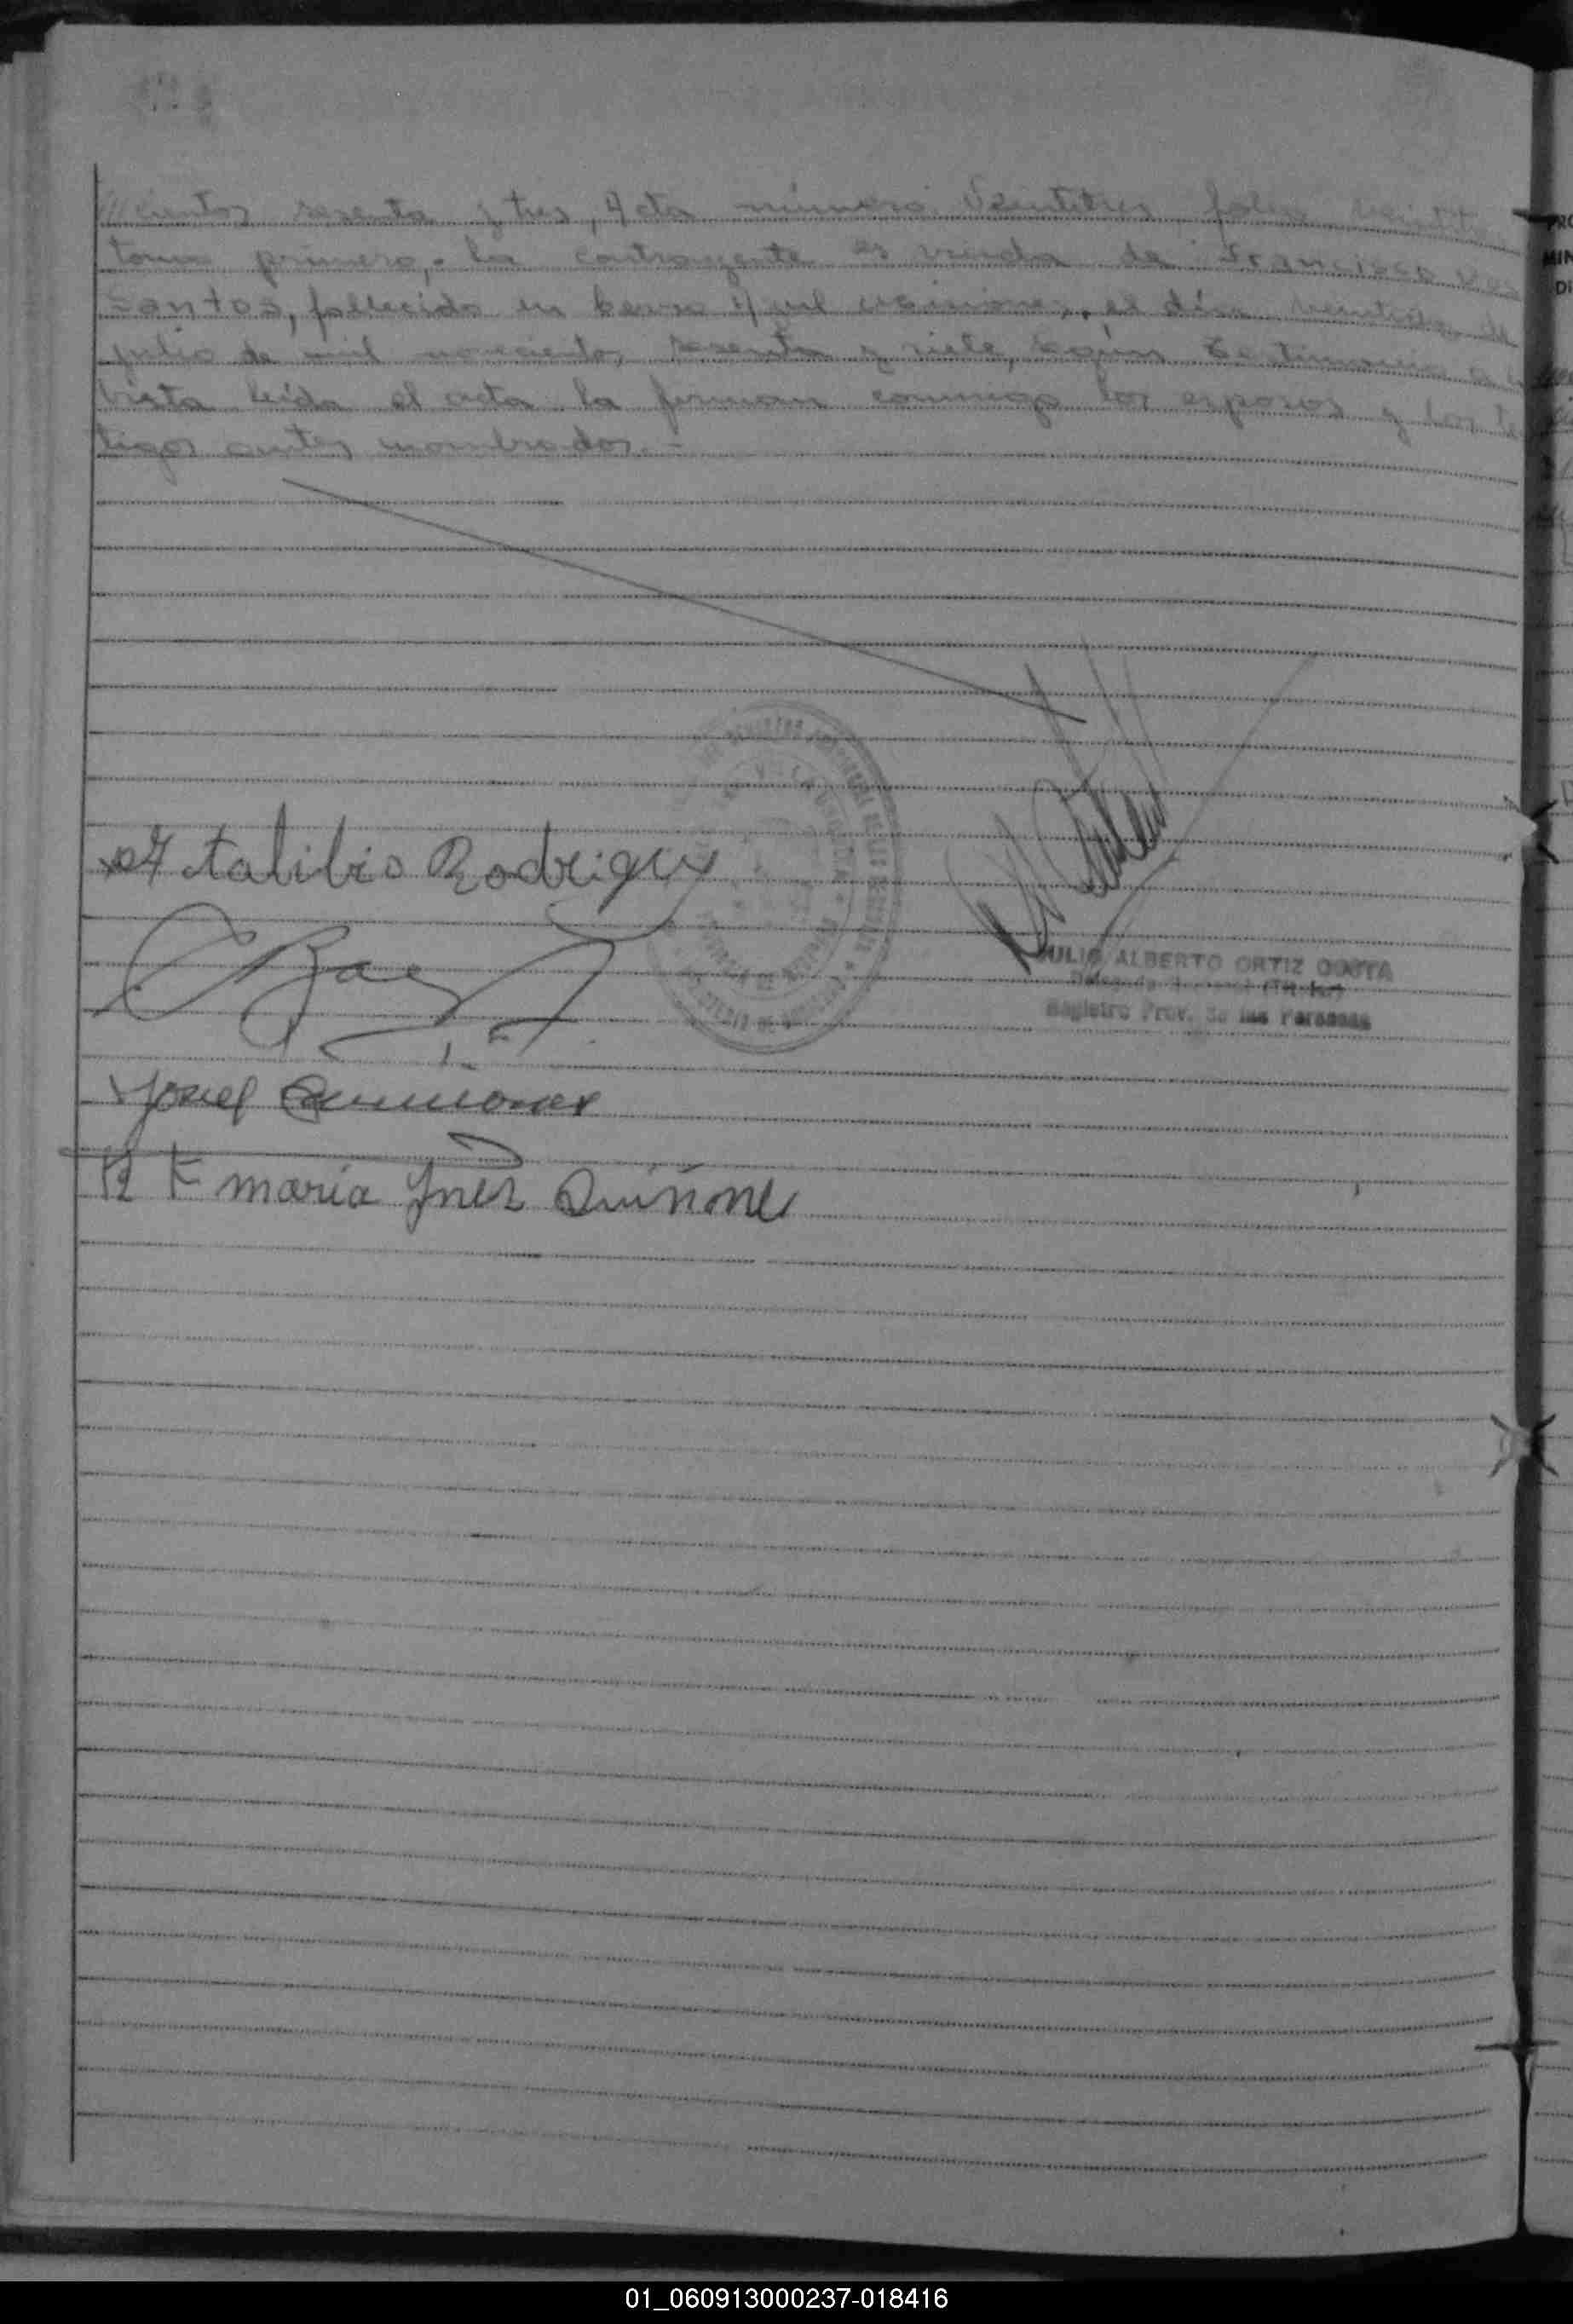 cientos sesenta y tres, Acta número Veintitres folio
tomo primero,- la contrayente es viuda de Francisco Dos
Santos, fallecido en Cerro Azul misiones, el día veintidos de
julio de mil novecientos sesenta y siete, según testimonio a la
vista leída el acta la firman conmigo los esposos y los tes
tigos antes nombrados.-
Atalibio Rodriguez
JULIO ALBERTO ORTIZ COSTA
Delegado (Titular)
Registro Prov. de las Personas
Baez
maria Ynes Quiñones
01_060913000237-018416